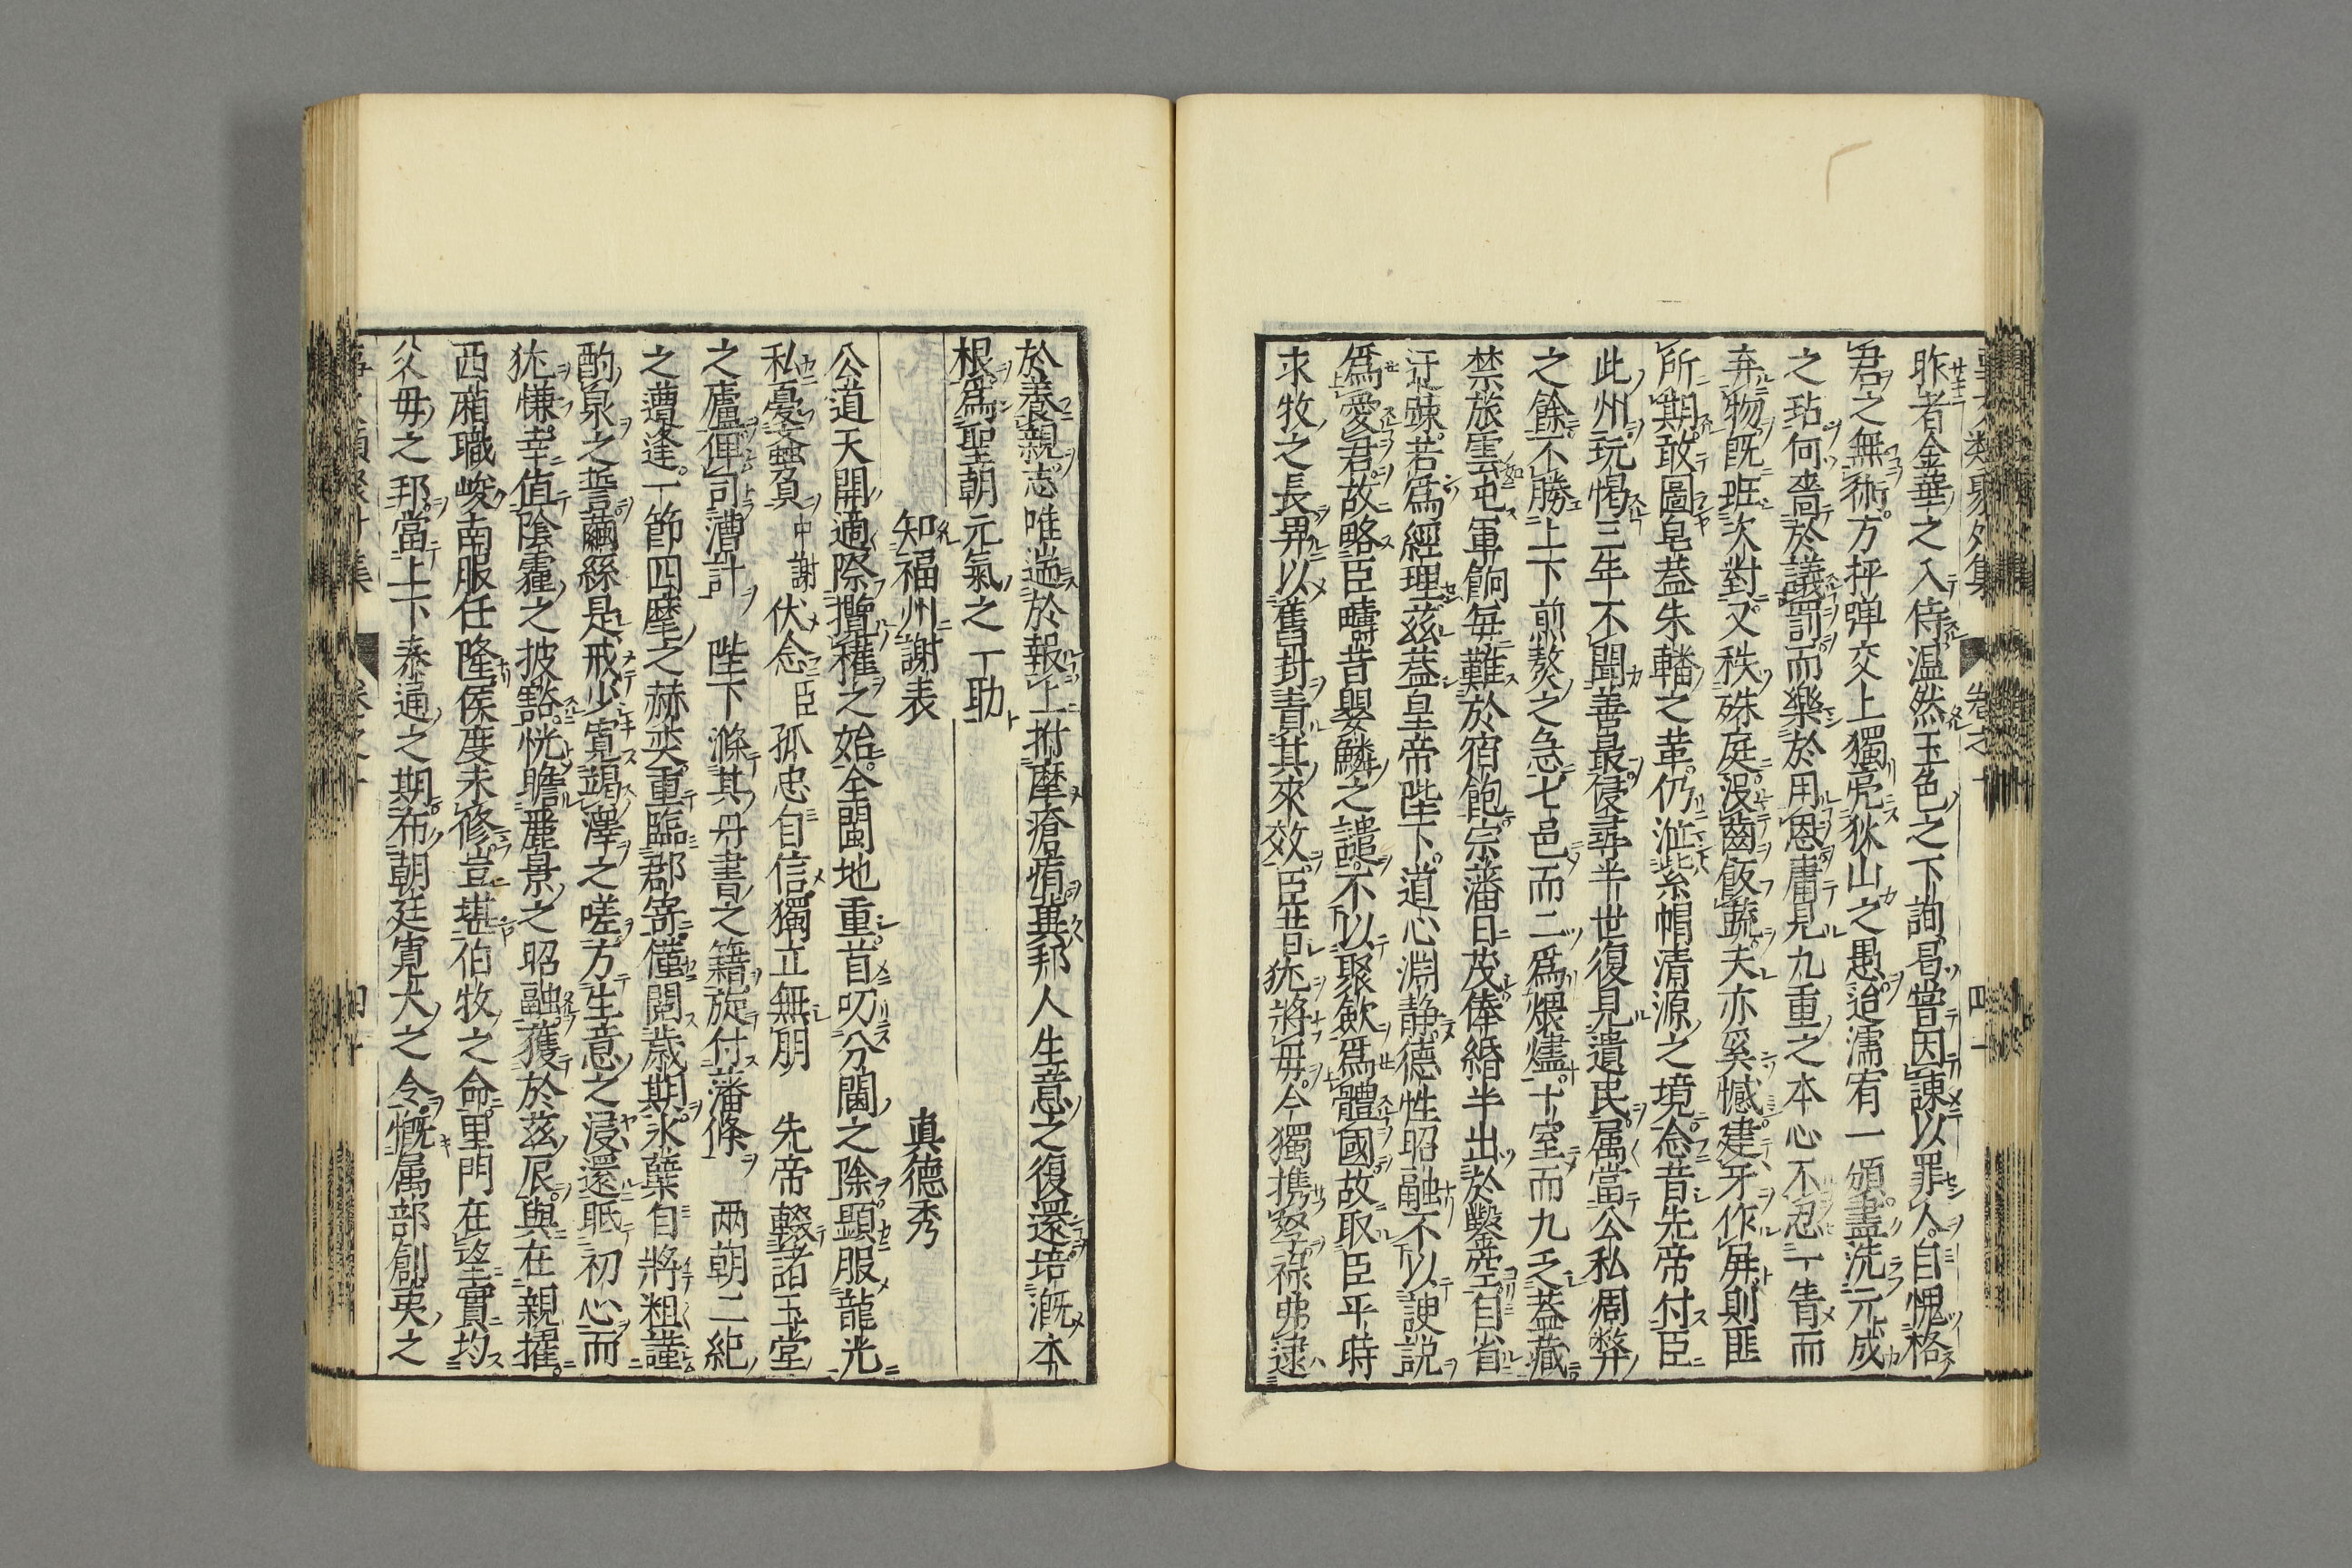 昨者金華之入侍温然玉色之下詢曷嘗因諫以罪人自愧格
君之無術方抨弹交上獨亮狄山之愚迨濡宥一頒盡洗元成
之玷何嗇於議罰而樂於用恩庸見九重之本心不忍一眚而
弃物既班次對又秩殊庭没齒飯蔬夫亦奚憾建牙作屏則匪
所期敢圖皂葢朱轓之華仍涖紫帽清源之境念昔先帝付臣
此州玩愒三年不聞善最侵尋半世復見遺民属當公私凋弊
之餘不勝上下煎熬之急七邑而二爲煨燼十室而九乏葢藏
禁旅雲屯軍餉每難於宿飽宗藩日茂俸緡半出於鑿空自省
迂疎若爲經理兹葢皇帝陛下道心淵静德性昭融不以諛説
爲愛君故略臣疇昔嬰鱗之譴不以聚歛爲體國故取臣平時
求牧之長畀以舊封責其來效臣昔猶將毋今獨携孥禄弗逮
於養親志唯耑於報上拊摩瘡痏冀邦人生意之復還培漑本
根爲聖朝元氣之一助
知福州謝表 真德秀
公道天開適際攬權之始全閩地重首叨分閫之除顕服龍光
私憂蚉負 中謝 伏念臣 孤忠自信獨立無朋 先帝輟諸玉堂
之廬俾司漕計 陛下滌其丹書之籍旋付藩條 兩朝二紀
之遭逢一節四麾之赫奕重臨郡寄僅閲歳期氷蘖自將粗謹
酌泉之誓繭絲是戒少寛竭澤之嗟方生意之浸還眂初心而
猶慊幸值陰霾之披豁恍瞻麗景之昭融獲於兹辰與在親擢
西廂職峻南服任隆侯度未修豈堪伯牧之命里門在望實均
父毋之邦當上下泰通之期布朝廷寛大之令慨属部創夷之